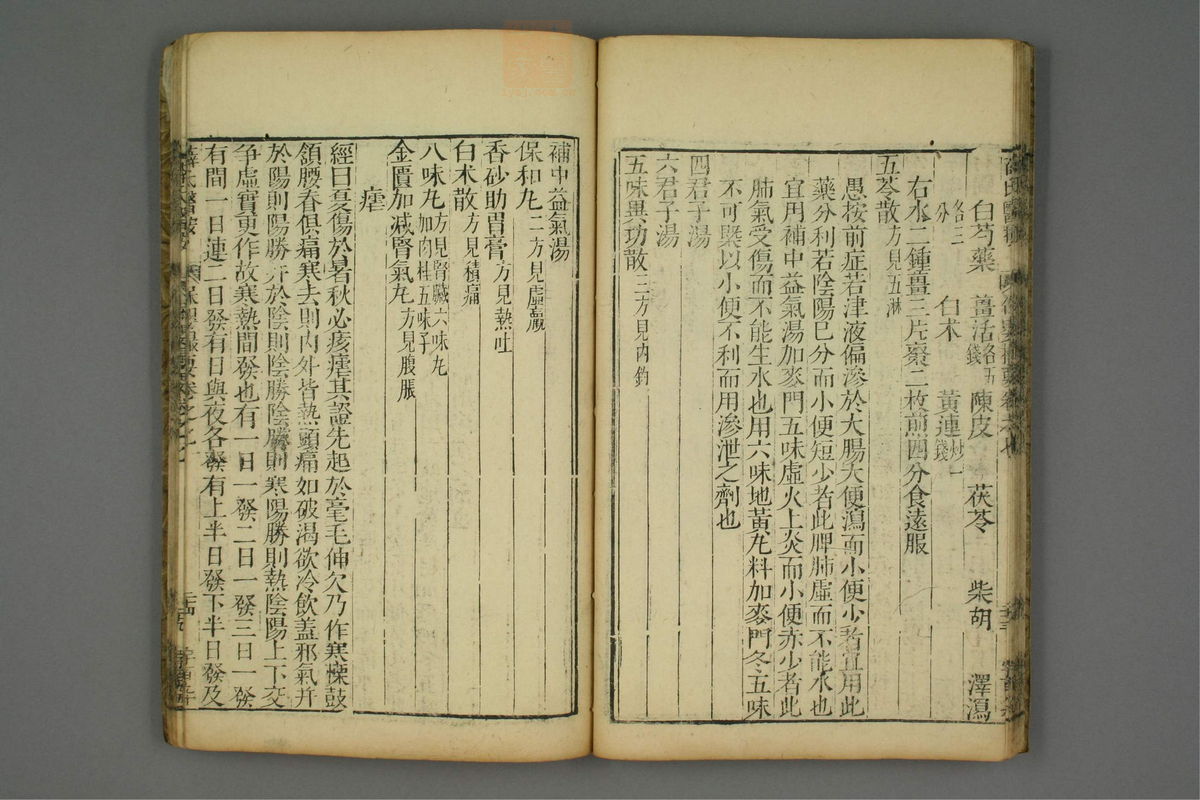 白芍藥 薑活各五錢 陳皮 茯苓 柴胡 澤瀉
各三分 白朮 黃連炒一錢
右水二鍾薑三片棗二枚煎四分食遠服
五苓散方見五淋
愚按前症若津液偏滲於大腸大便瀉而小便少者宜用此
藥分利若陰陽已分而小便短少者此脾肺虛而不能水也
宜用補中益氣湯加麥門五味虛火上炎而小便赤少者此
肺氣受傷而不能生水也用六味地黃九料加麥門冬五味
不可槩以小便不利而用滲泄之劑也
四君子湯
六君子湯
五味異功散三方見內釣
補中益氣湯
保和九二方見虛羸
香砂助胃膏方見熱吐
白朮散方見積痛
八味九方見腎臟六味九加肉桂五味子
金匱加減腎氣九方見腹脹
瘧
經曰夏傷於暑秋必痎瘧其證先起於毫毛伸欠乃作寒慄鼓
頷腰脊俱痛寒去則內外皆熱頭痛如破渴欲冷飲蓋邪氣并
於陽則陽勝并於陰則陰勝陰勝則寒陽勝則熱陰陽上下交
争虛實更作故寒熱間發也有一日一發二日一發三日一發
有間一日連二日發有日與夜各發有上半日發下半日發及